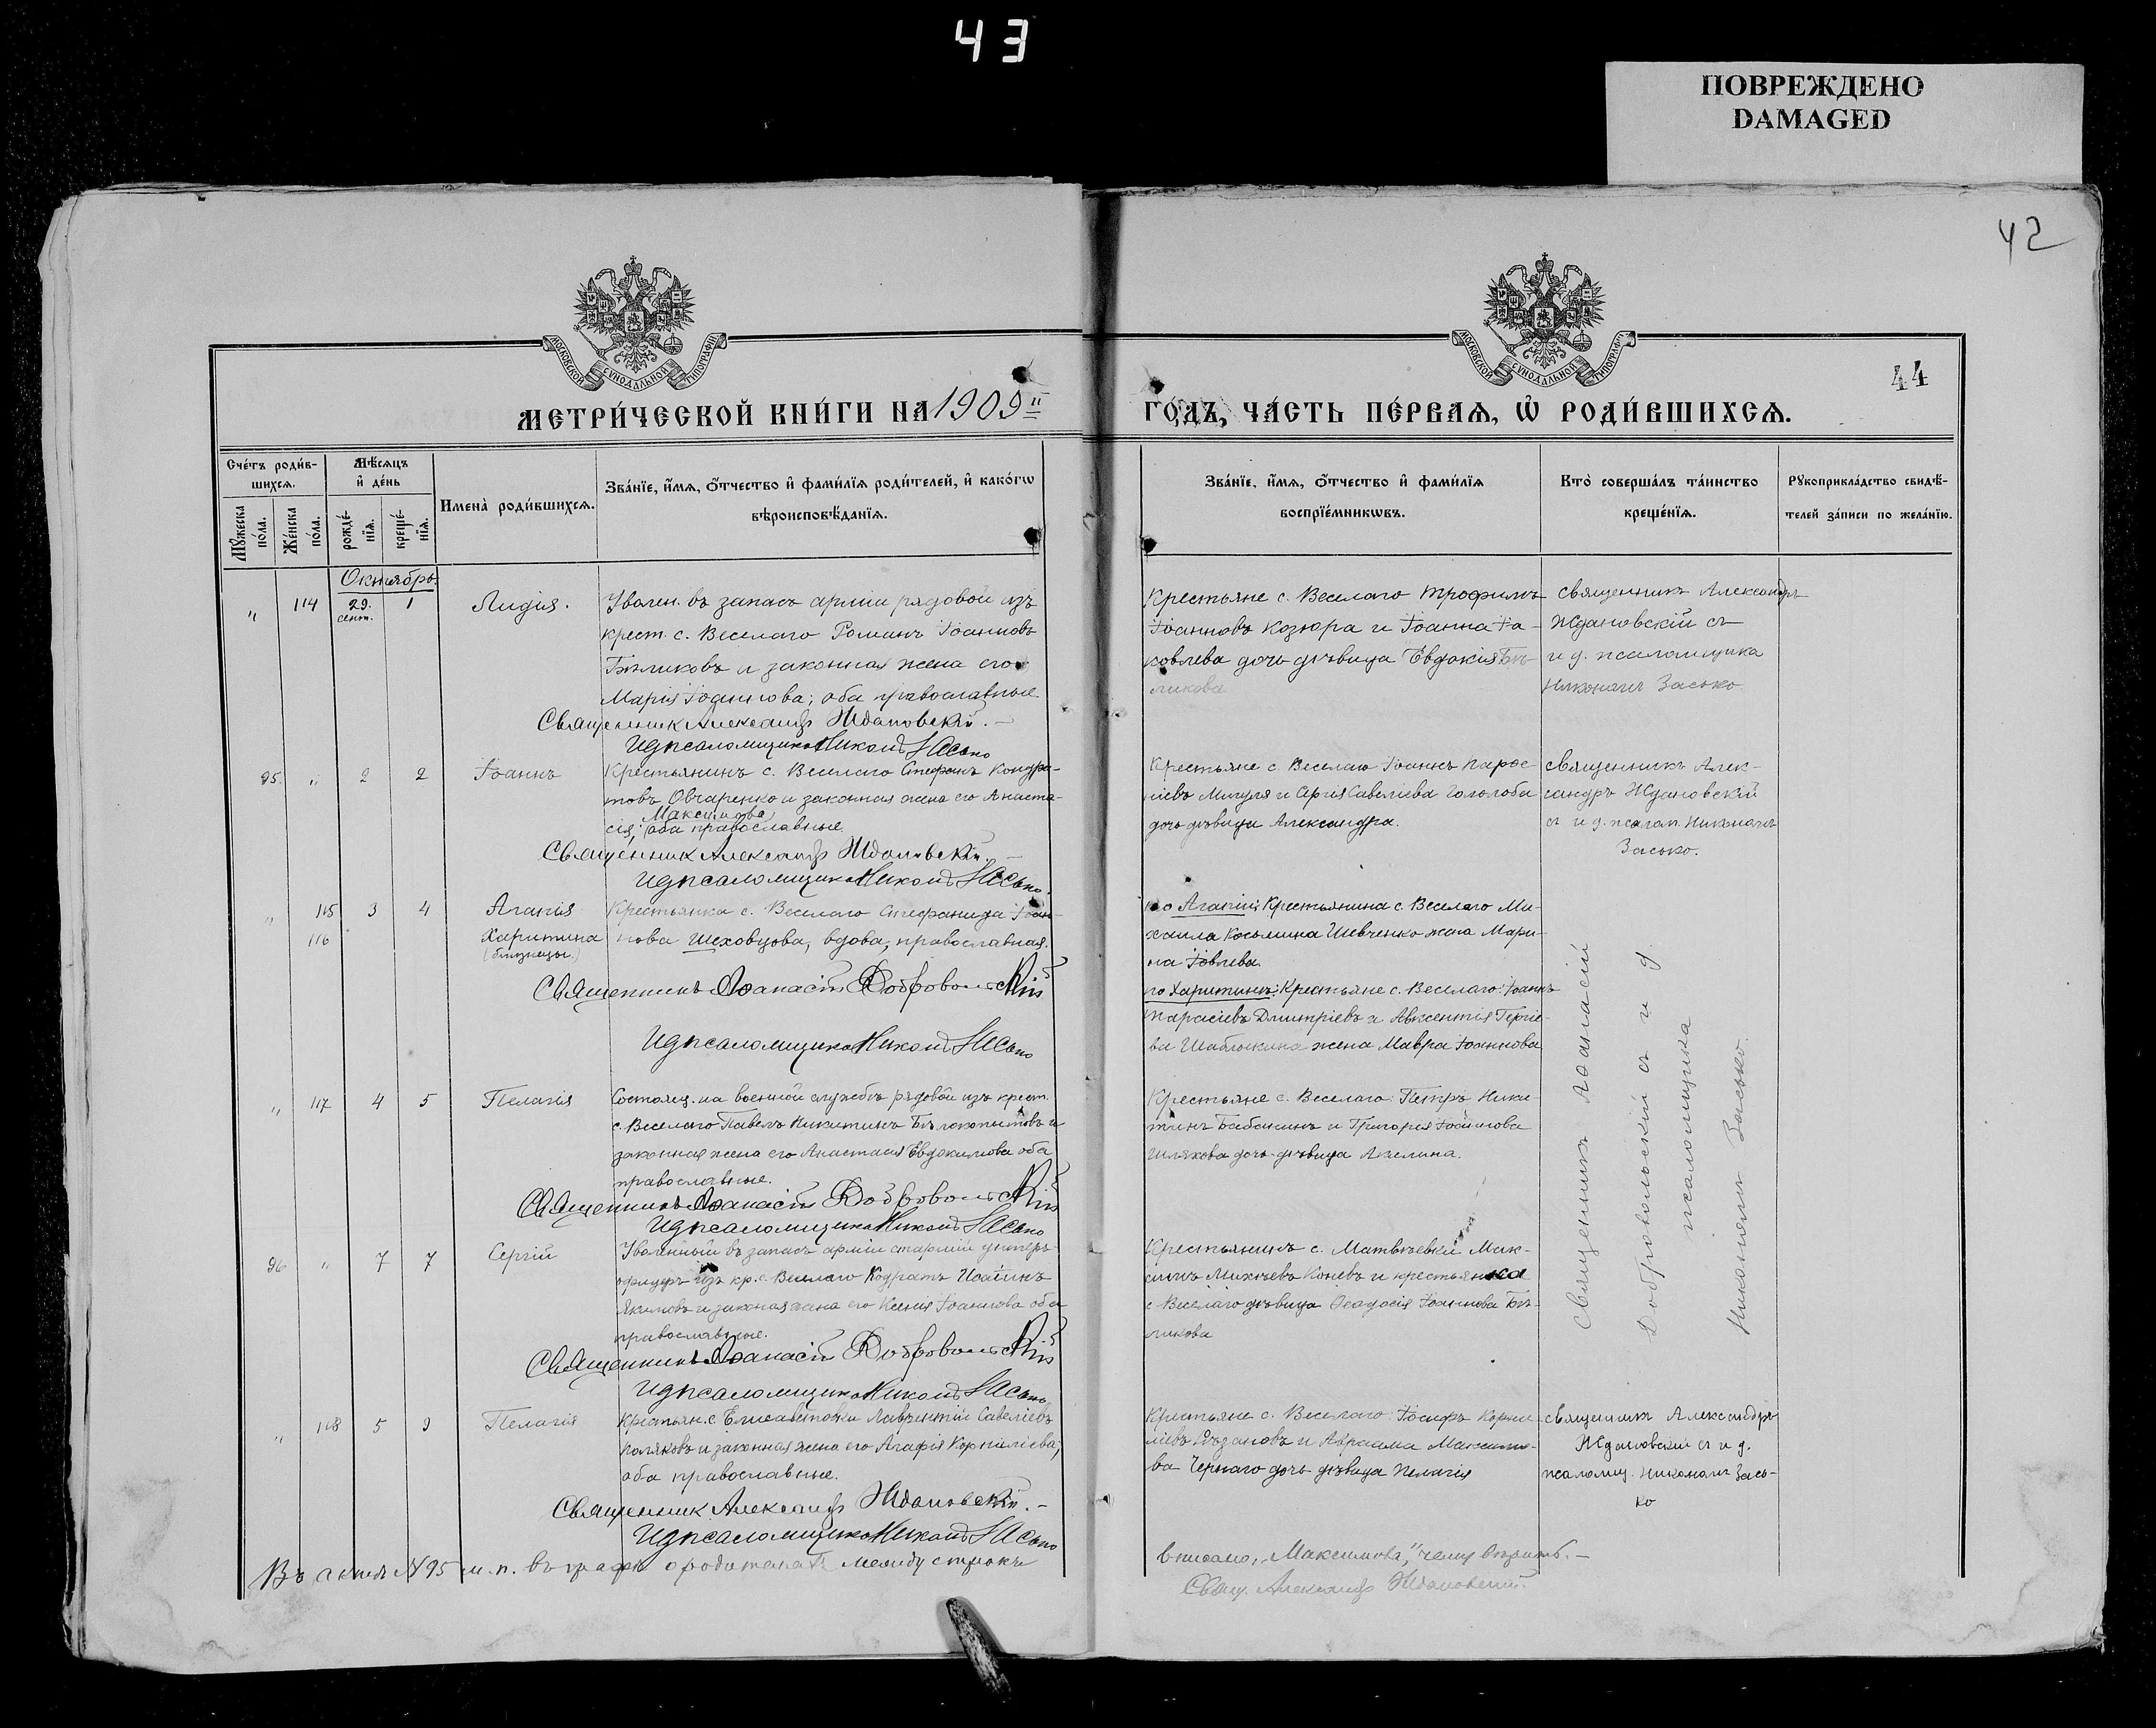 43
ПОВРЕЖДЕНО
DAMAGED
42
44
МОСКОВСКОЙ СѴНОДАЛЬНОЙ ТИПОГРАФІИ
МОСКОВСКОЙ СѴНОДАЛЬНОЙ ТИПОГРАФІИ
МЕТРИ́ЧЕСКОЙ КНИ́ГИ НА 1909й
ГО́ДЪ, ЧА́СТЬ ПЕ́РВАѦ, Ѡ҆ РОДИ́ВШИХСѦ.
Сче́тъ роди́в-
шихсѧ.
Мѣ́сѧцъ
и҆ де́нь
Мꙋ́жеска
по́ла.
Же́нска
по́ла.
рожде́-
нїѧ.
креще́-
нїѧ.
Имена̀ роди́вшихсѧ.
Зва́нїе, и҆́мѧ, ѻ҆́тчество и҆ фами́лїѧ роди́телей, и҆ како́гѡ
вѣроисповѣ́данїѧ.
Зва́нїе, и҆́мѧ, ѻ҆́тчество и҆ фами́лїѧ
воспрїе́мникѡвъ.
Кто̀ соверша́лъ та́инство
креще́нїѧ.
Рꙋкоприкла́дство свидѣ́-
телей за́писи по жела́нїю.
Октябрь.
" 114 29. сент. 1 Лидія.
Уволен. въ запасъ арміи рядовой изъ
крест. с. Веселаго Романъ Іоанновъ
Бѣликовъ и законная жена его
Марія Іоаннова; оба православные
Священник Александр Ждановскій. —
И д псаломщика Никонъ Засько
Крестьяне с. Веселаго Трофимъ
Іоанновъ Козюра и Іоанна Іа-
ковлева дочь дѣвица Евдокія Бѣ-
ликова
священникъ Александръ
Ждановскій съ
и д. псаломщика
Никономъ Засько
95. " 2 2 Іоаннъ
Крестьянинъ с. Веселаго Стефанъ Кондра-
товъ Овчаренко и законная жена его Анаста-
Максимова
сія; оба православные.
Священник Александр Ждановскій. —
И д псаломщика Никонъ Засько.
Крестьяне с. Веселаго Іоаннъ Тарас-
іевъ Мигуля и Савеліева Гололоба
дочь дѣвица Александра.
священникъ Алек-
сандръ Ждановскій
съ и д. псалом. Никономъ
Засько.
" 115 3 4 Агапія
116 Харитина
(близнецы.)
Крестьянка с. Веселаго Стефанида Іоан-
нова Шеховцова, вдова, православная.
Священникъ Аѳанасій Добровольскій
И д псаломщика Никонъ Засько
по Агапіи: Крестьянина с. Веселаго Ми-
хаила Косьмина Шевченко жена Мари-
на Іовлева.
по Харитинѣ: Крестьяне с. Веселаго: Іоаннъ
Тарасіевъ Дмитріевъ и Авксентія Георгіе-
ва жена Мавра Іоаннова
Священникъ Аѳанасій
Добровольскій съ и д
псаломщика
Никономъ Засько.
" 117 4 5 Пелагія
Состоящ. на военной службѣ рядовой изъ крест.
с. Веселаго Павелъ Никитинъ Бѣлокопытовъ и
законная жена его Анастасія Евдокимова оба
православные.
Священникъ Аѳанасій Добровольскій
И д псаломщика Никонъ Засько
Крестьяне с. Веселаго: Петръ Ники-
тинъ Бабакинъ и Григорія Іоаннова
Шляхова дочь дѣвица Акилина.
96 " 7 7 Сергій
Уволенный въ запасъ арміи старшій унтеръ-
офицеръ изъ кр. с. Веселаго Кодратъ
Якимовъ и законная жена его Ксенія Іоаннова оба
православные.
Священникъ Аѳанасій Добровольскій
И д псаломщика Никонъ Засько
Крестьянинъ с. Матвѣевки Мак-
симъ Михѣевъ Коневъ и крестьянка
с Веселаго дѣвица Ѳеодосія Іоаннова Бѣ-
ликова
" 118 5 9 Пелагія
Крестьян. с. Елисаветовки Лаврентій Савеліевъ
Поляковъ и законная жена его Агафія Корниліева,
оба православные.
Священник Александр Ждановскій. —
И д псаломщика Никонъ Засько
Крестьяне с. Веселаго: Іосифъ Корни-
ліевъ и Авраама Максимо-
ва Чернаго дочь дѣвица Пелагія
священникъ Александръ
Ждановскій съ и д.
псаломщ. Никономъ Зась-
ко
Въ актѣ №95 м. п. въ графѣ о родителяхъ между строкъ
вписано „Максимова," чему вѣрить. —
Свящ. Александр Ждановскій.